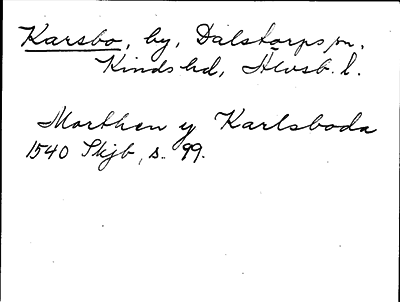 Karsbo, by, Dalstorps sn.
Kinds hd, Älvsb. l.
Morthen y Karlsboda
1540 Skjb, s. 99.